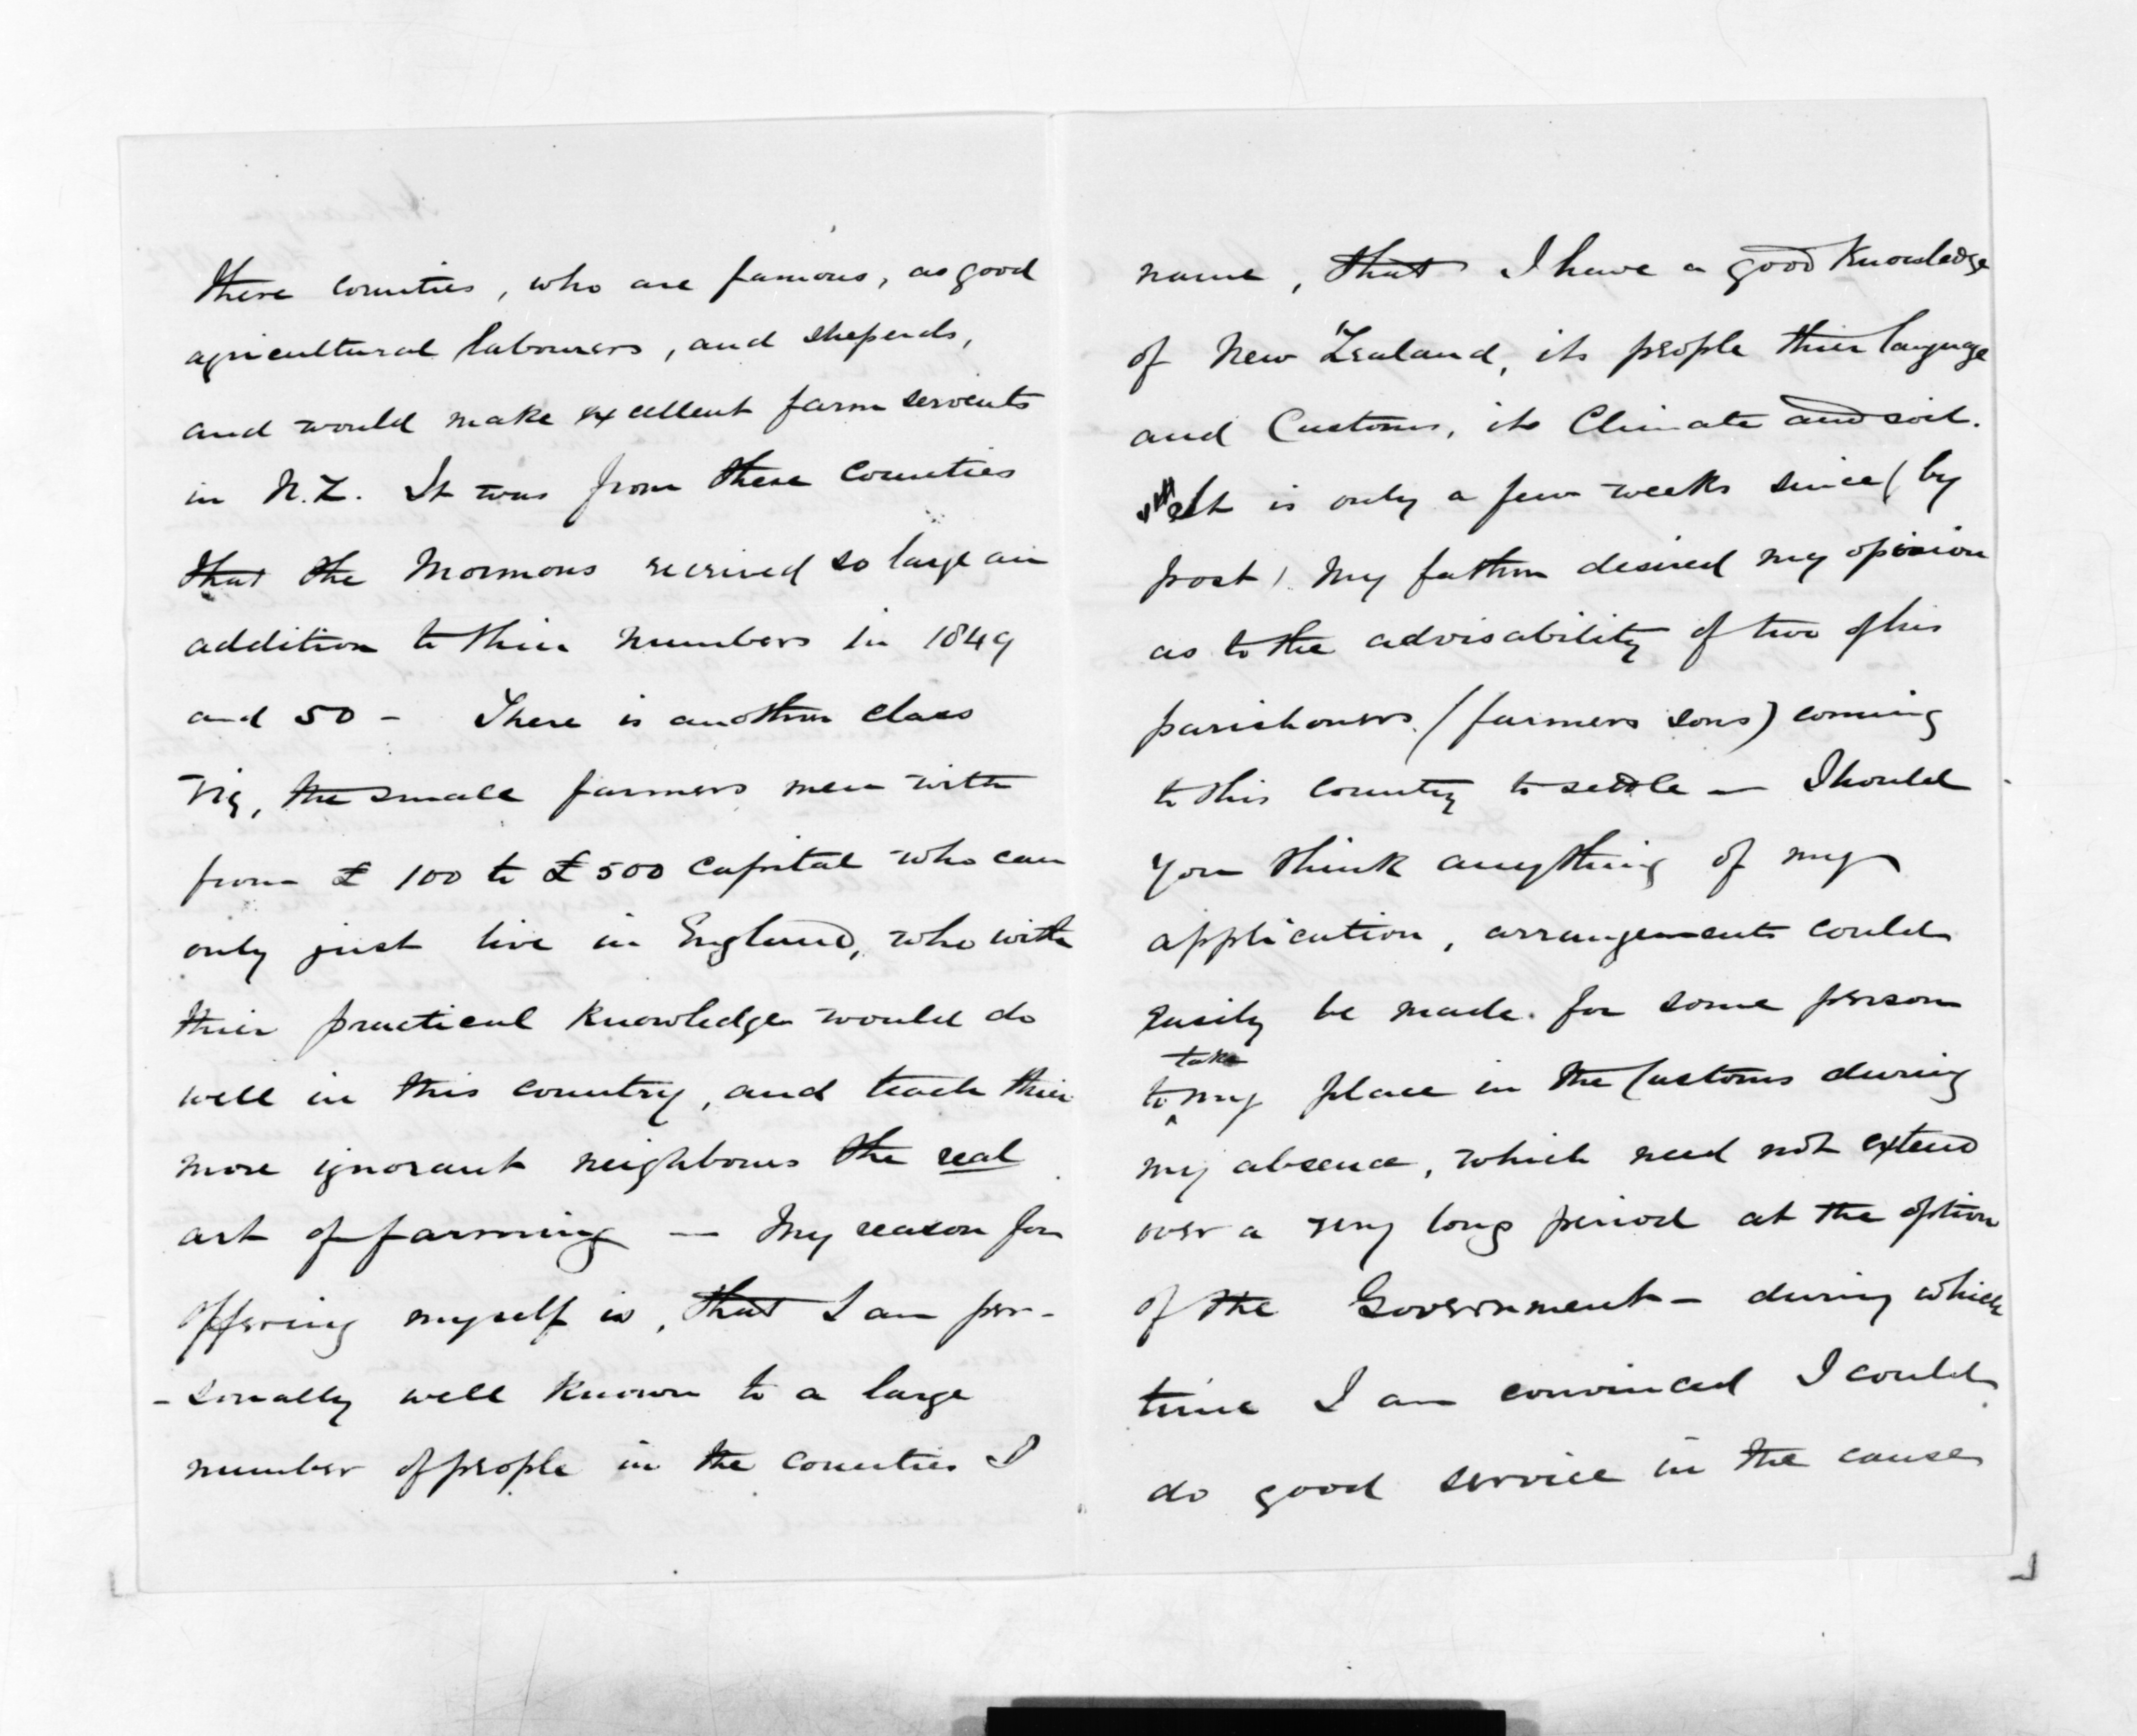 these counties, who are famous, as good
agricultural labourers, and sheperds,
and would make excellent farm servents
in N.Z. It was from these Counties
that the Mormons received so large an
addition to thier numbers in 1849
and 50 - There is another class
viz, the small farmers men with
from £ 100 to £ 500 capital who can
only just live in England, who with
thier practical knowledge would do
well in this country, and teach thier
more ignorant neighbours the real
art of farming — My reason for
offering myself is, that I am per-
-sonally well known to a large
number of people in the counties I
name, that I have a good knowledge
of New Zealand, its people thier language
and Customs, its Climate and soil.
It is only a few weeks since (by
post) my father desired my opinion
as to the advisability of two of his
parishoners (farmers sons) coming
to this country to settle — Should
you think anything of my
application, arrangements could
easily be made for some person
to take my place in the Customs during
my absence, which need not extend
over a very long period at the option
of the Government - during which
time I am convinced I could
do good service in the cause